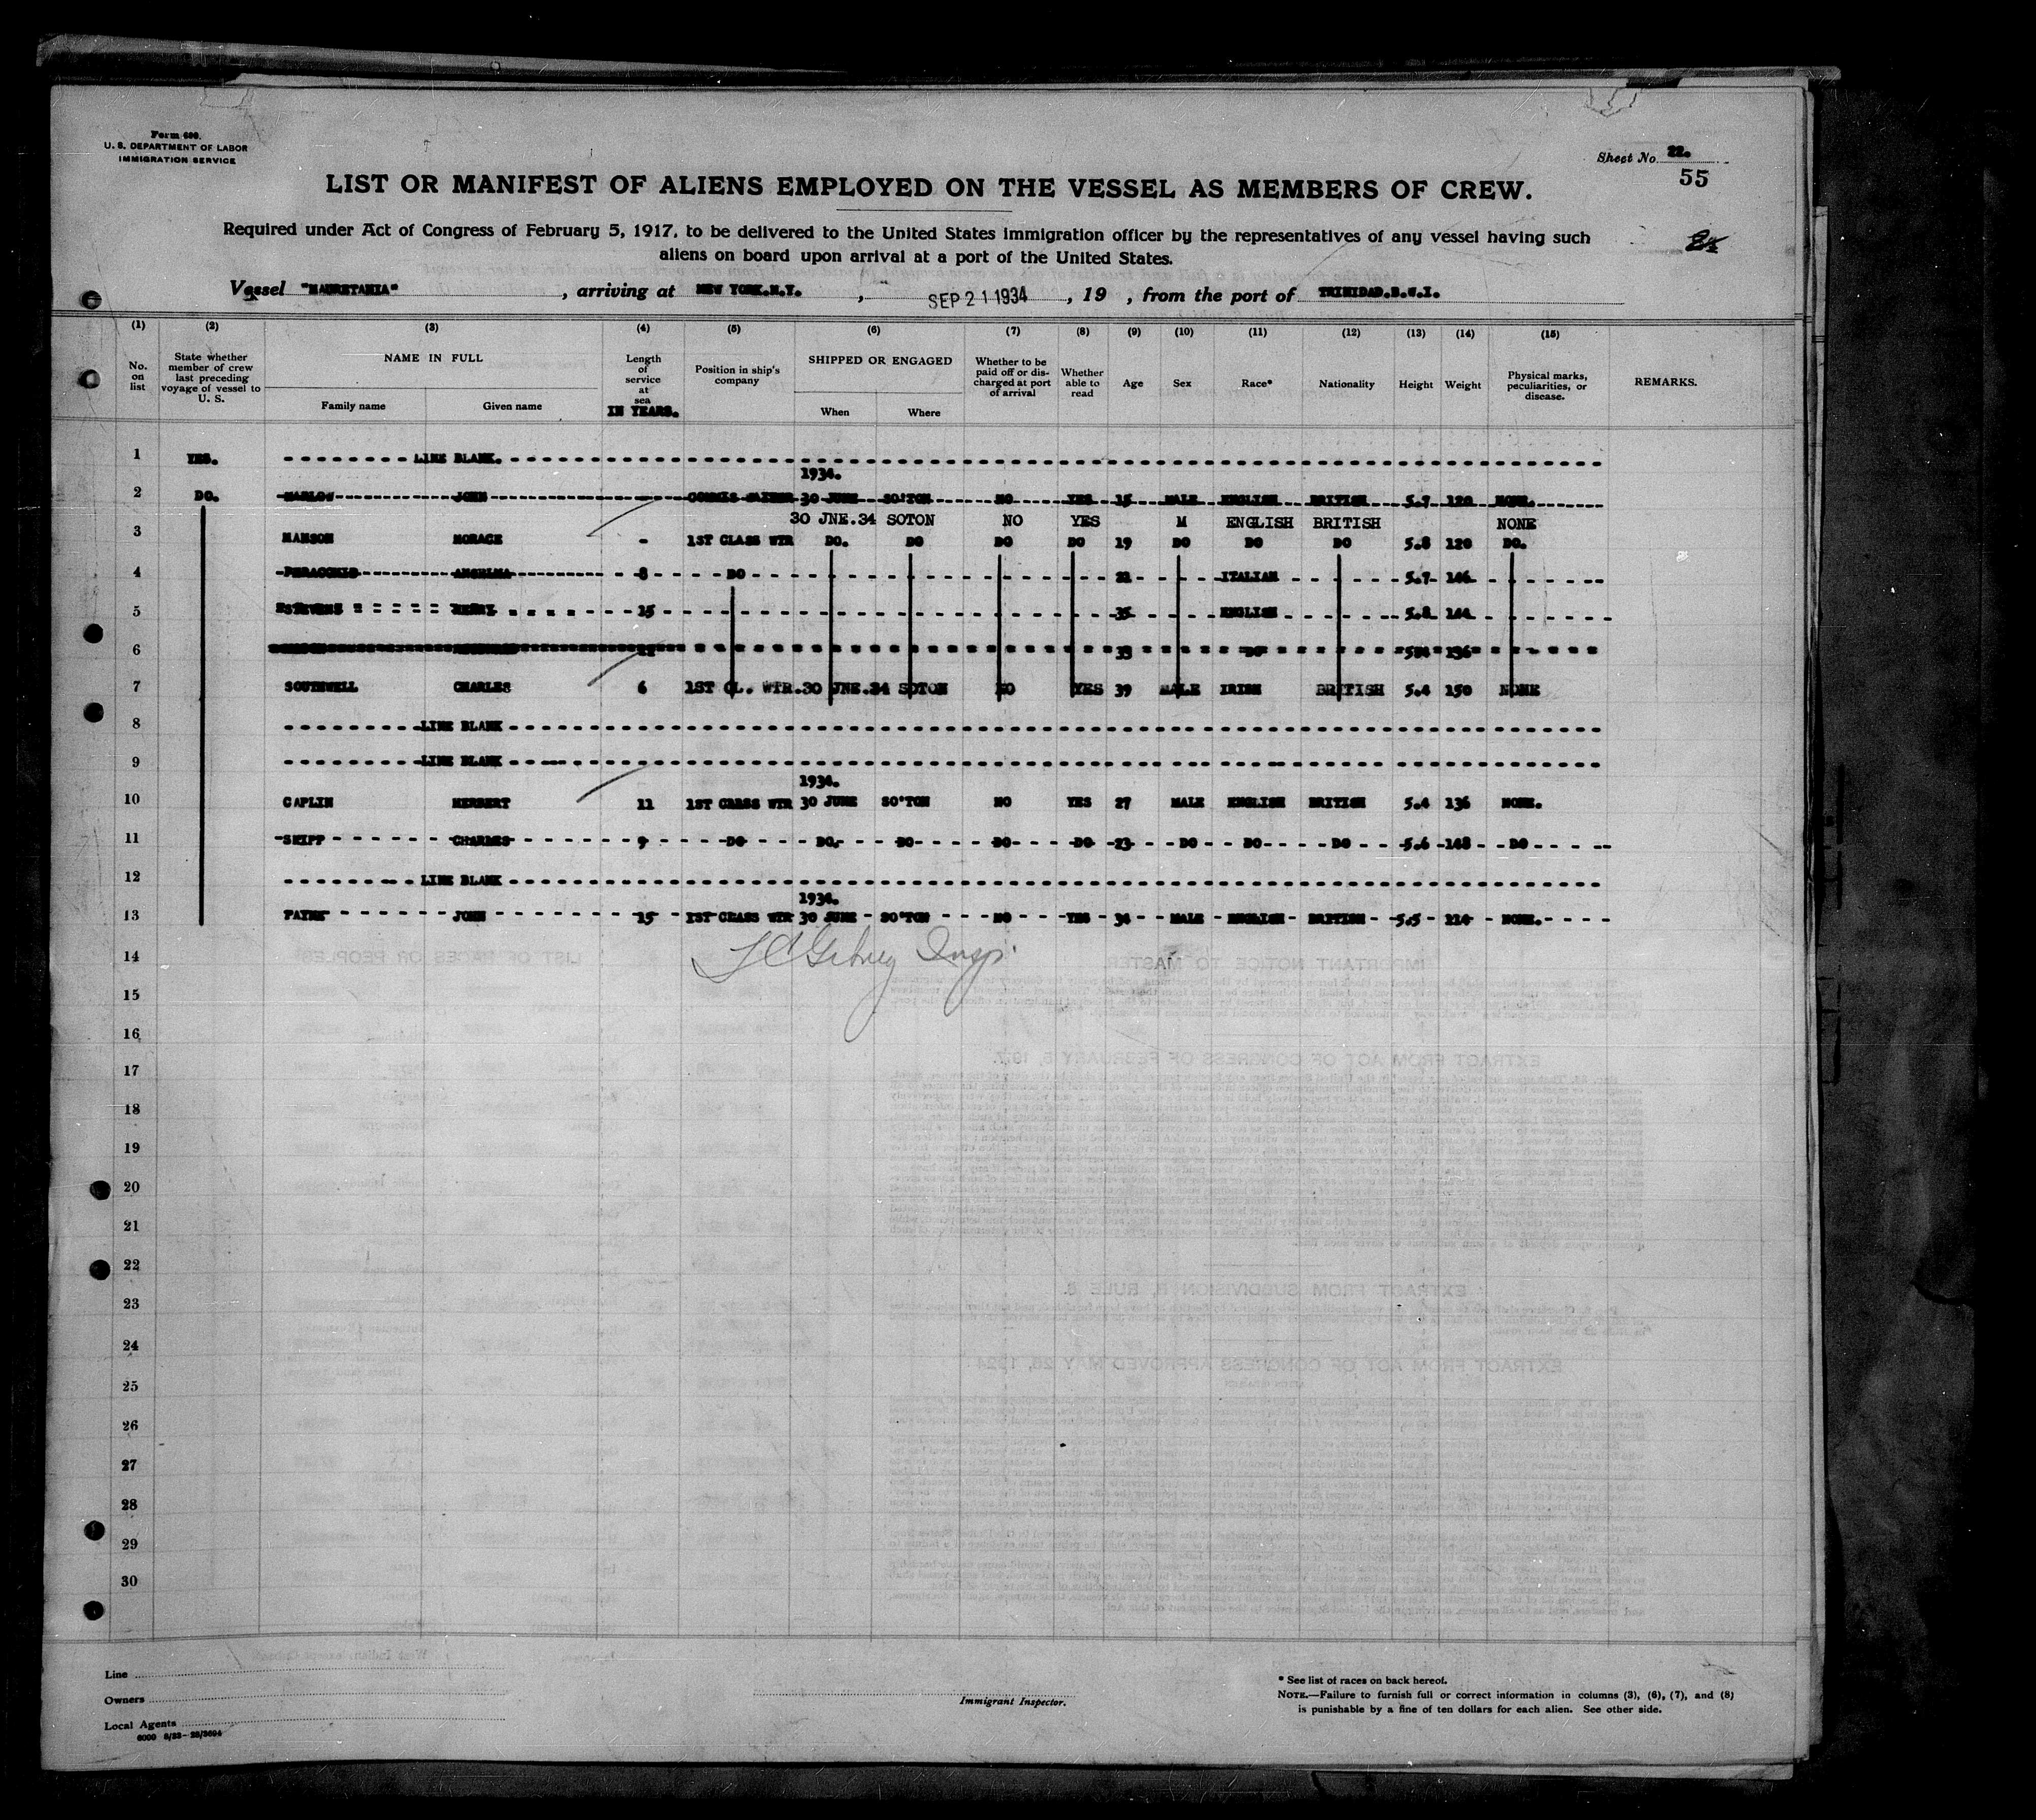 Form 680.
U. S. DEPARTMENT OF LABOR
IMMIGRATION SERVICE
Sheet No. 22.
55
LIST OR MANIFEST OF ALIENS EMPLOYED ON THE VESSEL AS MEMBERS OF CREW.
Required under Act of Congress of February 5, 1917, to be delivered to the United States immigration officer by the representatives of any vessel having such
aliens on board upon arrival at a port of the United States.
Vessel "MAURETANIA", arriving at NEW YORK.N.Y., SEP 21 1934, 19 , from the port of TRINIDAD.B.W.I.
(1) (2) (3) (4) (3) (5) (6) (7) (8) (9) (10) (11) (12) (13) (14) (15)
No. on list State whether member of crew last preceding voyage of vessel to U. S. NAME IN FULL Family name Given name Length of service at sea IN YEARS. Position in ship's company SHIPPED OR ENGAGED When Where Whether to be paid off or discharged at port of arrival Whether able to read Age Sex Race* Nationality Height Weight Physical marks, peculiarities, or disease. REMARKS.
1 YES. LINE BLANK.
1934.
2 DO. MARLOW JOHN - COMMIS WAITER 30 JUNE SO'TON NO YES 15 MALE ENGLISH BRITISH 5.7 120 NONE.
30 JNE.34 SOTON NO YES M ENGLISH BRITISH NONE
3 MANSON HORACE - 1ST CLASS WTR DO. DO DO DO 19 DO DO DO 5.8 120 DO.
4 ANGELMA 8 DO 22 ITALIAN 5.7 146
5 STEVENS HENRY 15 35 ENGLISH 5.8 144
6 33 DO 136
7 SOUTHWELL CHARLES 6 1ST CL. WTR. 30 JNE.34 SOTON NO YES 39 MALE IRISH BRITISH 5.4 150 NONE
8 LINE BLANK
9 LINE BLANK
1934.
10 CAPLIN HERBERT 11 1ST CLASS WTR 30 JUNE SO'TON NO YES 27 MALE ENGLISH BRITISH 5.4 136 NONE.
11 SKIPP CHARLES 9 DO DO. DO DO DO 23 DO DO DO 5.6 148 DO
12 LINE BLANK
1934.
13 PAYNE JOHN 15 1ST CLASS WTR 30 JUNE SO'TON NO YES 34 MALE ENGLISH BRITISH 5.5 NONE.
14 Insp.
15
16
17
18
19
20
21
22
23
24
25
26
27
28
29
30
Line
Owners
Local Agents
Immigrant Inspector.
* See list of races on back hereof.
NOTE.—Failure to furnish full or correct information in columns (3), (6), (7), and (8)
is punishable by a fine of ten dollars for each alien. See other side.